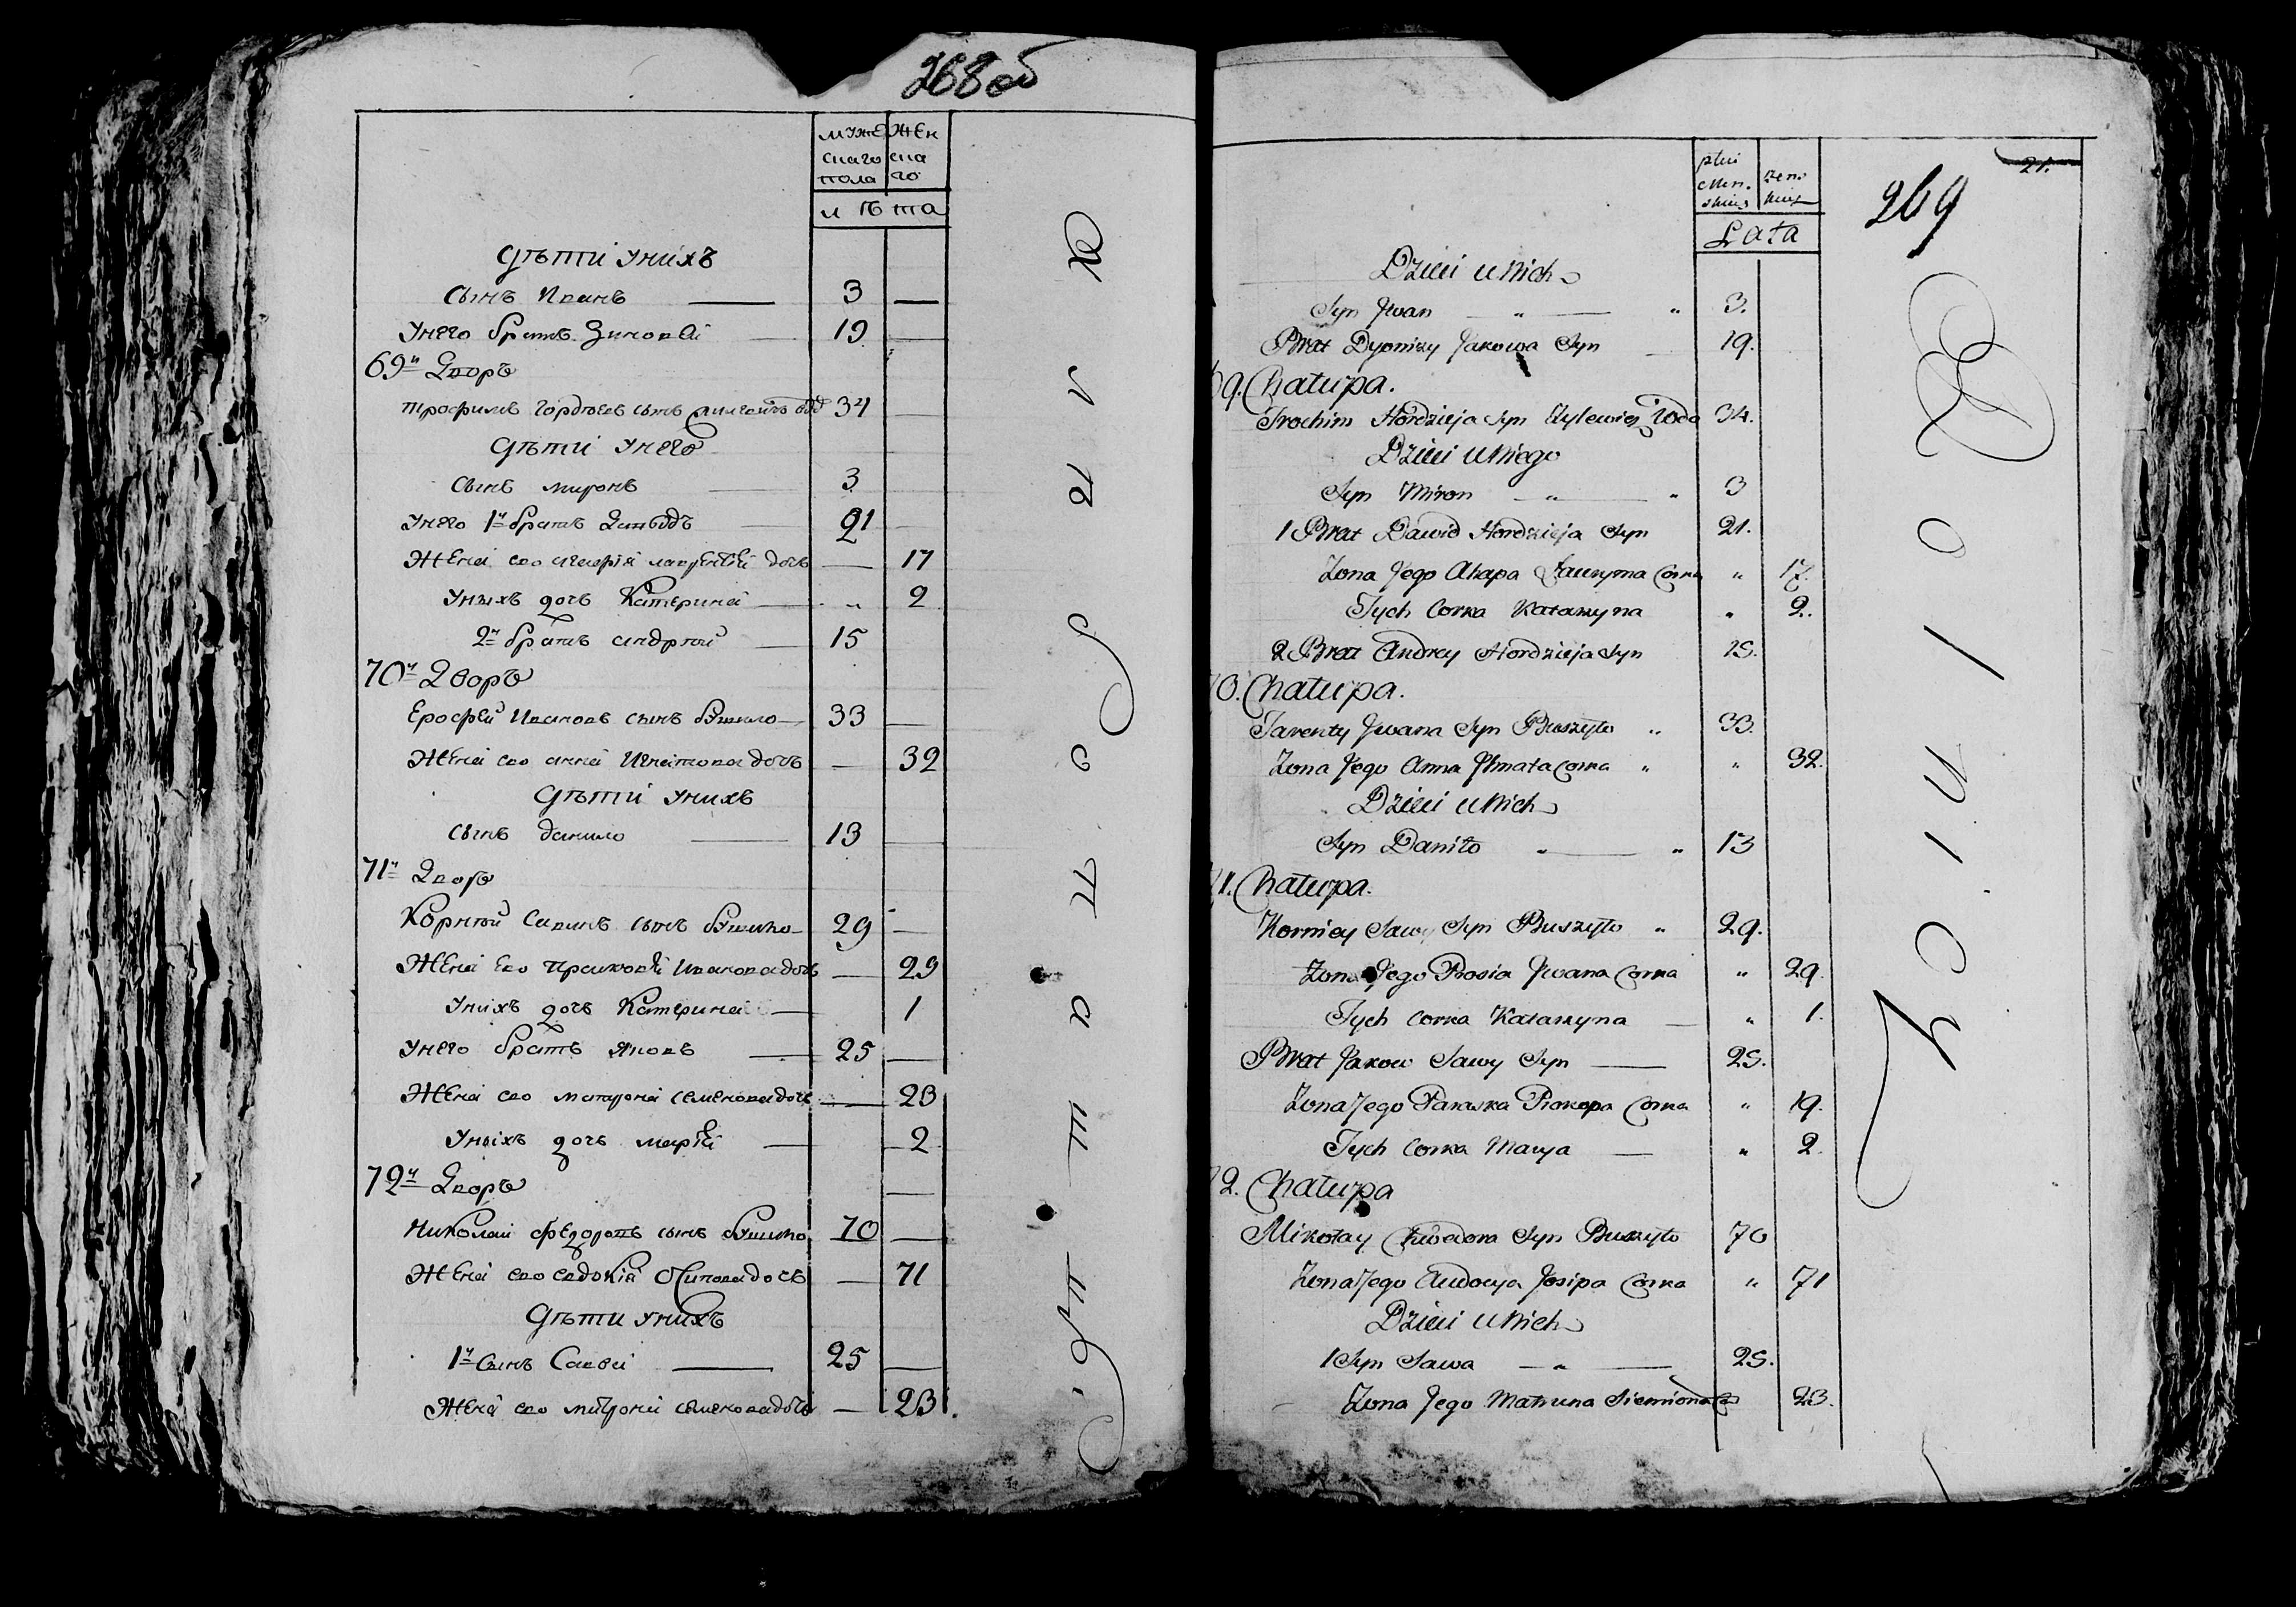 268 об
мужескаго пола
женскаго
лѣта
Дѣти унихъ
сынъ Иванъ 3 —
унего братъ Зиновей 19 —
69й Дворъ
трофимъ гордѣевъ сынъ 34 —
Дѣти унего
сынъ миронъ 3 —
унего 1й братъ Давыдъ 21 —
жена ево дочь — 17
унихъ дочь Катерина — „ 2
2й братъ андрѣй — 15
70й Дворъ
Ерофей Ивановъ сынъ бушило — 33 —
Жена ево анна Игнатова дочь — 32
Дѣти унихъ
сынъ данило — 13 —
71й Дворъ
Корнѣй Савинъ сынъ бушило — 29 —
Жена Ево Прасковья Иванова дочь — 29
унихъ дочь Катерина — 1
унего братъ Яковъ — 25 —
Жена ево матрона семенова дочь — 23
уныхъ дочь марья — 2
72й Дворъ —
Николай федоровъ сынъ бушило 70 —
Жена ево евдокия Осипова дочь — 71
Дѣти унихъ
1й сынъ Савва — 25 —
Жена ево матрона семенова дочь — 23.
21.
269
płci męskiey
żeńskiey
Lata
Dzieci u Nich
Syn Jwan „ — „ 3.
Brat Dyonizy Jakowa Syn — 19.
69. Chałupa.
Trochim Hordzieja Syn 34.
Dzieci u Niego
Syn Miron — „ — „ 3
1 Brat Dawid Hordzieja Syn 21.
Żona Jego Ahapa Ławryna Corka „ 17.
Tych Corka Katarzyna „ 2.
2 Brat Andrey Hordzieja Syn 15.
70. Chałupa.
Jarenty Jwana Syn Buszyło „ 33.
Żona Jego Anna Jhnata Corka „ „ 32.
Dzieci u Nich
Syn Daniło „ — „ 13
71. Chałupa.
Korniey Sawy Syn Buszyło „ 29.
Żona Jego Prosia Jwana Corka „ 29.
Tych Corka Katarzyna — „ 1.
Brat Jakow Sawy Syn — 25.
Żona Jego Paraska Prokopa Corka „ 19.
Tych Corka Marya — „ 2.
72. Chałupa
Mikołay Chwedora Syn Buszyło 70
Żona Jego Audocya Josipa Corka „ 71
Dzieci u Nich
1 Syn Sawa — „ — 25.
Żona Jego Matruna Siemiona Co 23.